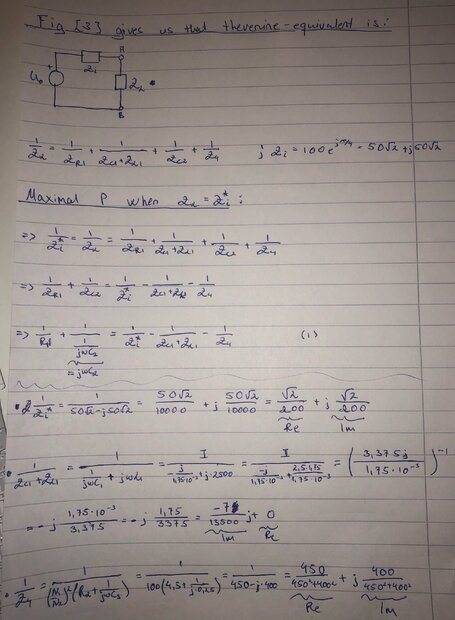 Fig [3] gives us that thevenine-equivalent is:
A
U₀ + Zi Zx
B
1/Zx = 1/ZR1 + 1/(ZC1+ZL1) + 1/ZC2 + 1/Z4 ; Zi = 100e^(jπ/4) = 50√2 + j50√2
Maximal P when Zx = Zi*:
=> 1/Zi* = 1/Zx = 1/ZR1 + 1/(ZC1+ZL1) + 1/ZC2 + 1/Z4
=> 1/ZR1 + 1/ZC2 = 1/Zi* - 1/(ZC1+ZL1) - 1/Z4
=> 1/R1 + 1/(1/jωC2) = 1/Zi* - 1/(ZC1+ZL1) - 1/Z4 (1)
= jωC2
• 1/Zi* = 1/(50√2-j50√2) = 50√2/10000 + j 50√2/10000 = √2/200 + j √2/200
Re Im
• 1/(ZC1+ZL1) = 1/(1/jωC1 + jωL1) = 1/(-j/1,75·10⁻³ + j·2500) = 1/(-j/1,75·10⁻³ + /1,75·10⁻³) = (3,375j/1,75·10⁻³)⁻¹
= -j 1,75·10⁻³/3,375 = -j 1,75/3375 = -7/13500 j + 0
Im Re
• 1/Z4 = 1/((N1/N2)²(R2 + 1/jωC3)) = 1/(100(4,5+1/j·0,25)) = 1/(450-j·400) = 450/(450²+400²) + j 400/(450²+400²)
Re Im